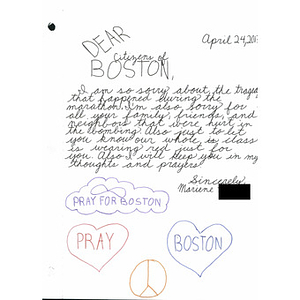 April 24, 201
DEAR
Citizens of
BOSTON,
I am so sorry about the
that happened during the
marathon. I'm also sorry for
all your family, friends, and
neighbors that were hurt in
the bombing. Also just to let
you know our whole class
is wearing red just for
you. Also I will keep you in my
thoughts and prayers.
Sincerely,
PRAY FOR BOSTON
PRAY
BOSTON